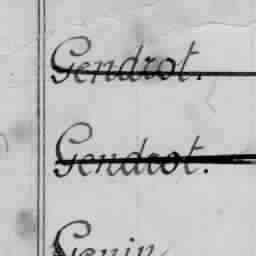 Gendrot.
Gendrot.
Genin